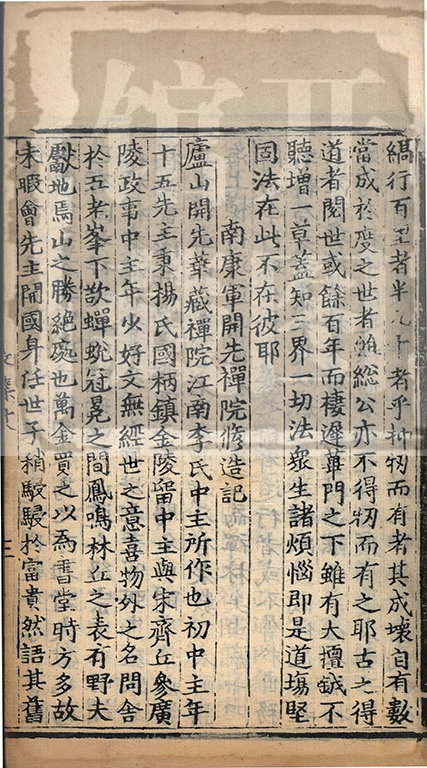 縞行百里者半九十者乎抑物而有者其成壞自有數
當成於度之世者雖總公亦不得物而有之耶古之得
道者閱世或餘百年而棲遲蓽門之下雖有大檀鉞不
聽增一草蓋知三界一切法衆生諸煩惱即是道塲堅
固法在此不在彼耶
南康軍開先禪院脩造記
廬山開先華藏禪院江南李氏中主所作也初中主年
十五先主秉楊氏國柄鎮金陵留中主與宋齊丘參廣
陵政事中主年少好文無經世之意喜物外之名問舍
於五老峯下欲蟬蛻冠冕之間鳳鳴林丘之表有野夫
獻地焉山之勝絕處也萬金買之以為書堂時方多故
未暇會先主開國身任世子稍駸駸於富貴然語其舊
三